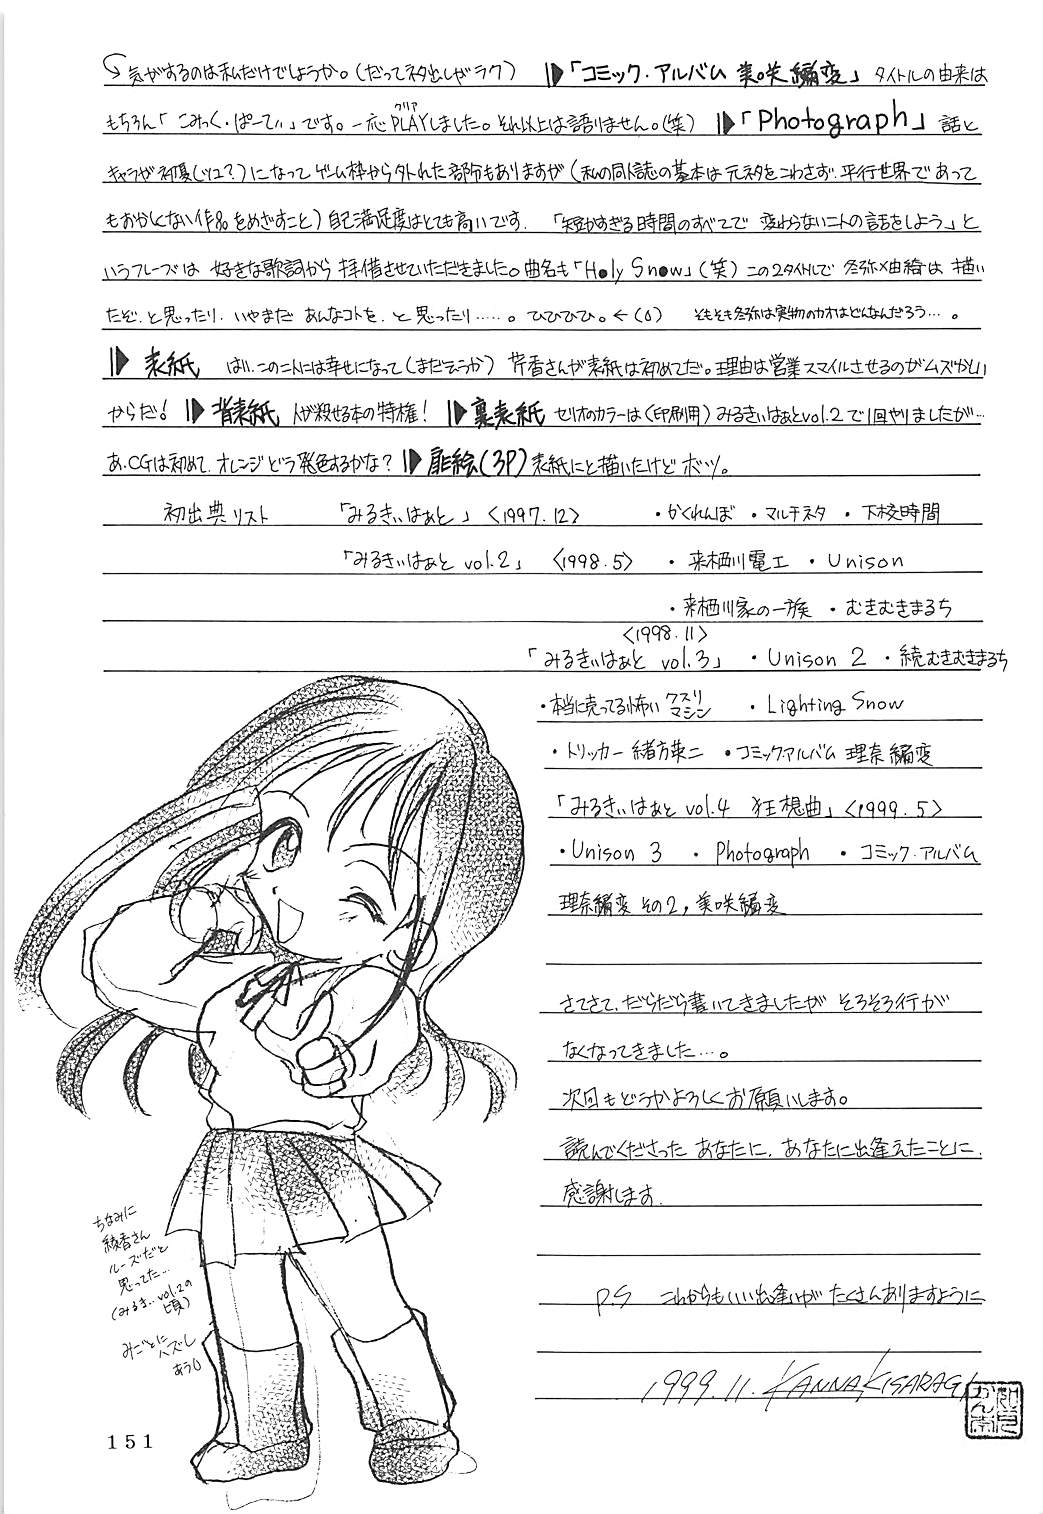 気がするのは私だけでしょうか。(だってネタ出しがラク) 「コミック・アルバム 美咲編変」 タイトルの由来は
もちろん「こみっく・ぱーてぃ」です。一応PLAYクリアしました。それ以上は語りません。(笑) 「Photograph」 話と
キャラが初憂(ソコ?)になってゲーム枠から外れた部分もありますが(私の同人誌の基本は元ネタをこわさず、平行世界であって
もおかしくない作品をめざすこと)自己満足度はとても高いです。「短かすぎる時間のすべてで 変わらない二人の話をしよう」と
いうフレーズは 好きな歌詞から拝借させていただきました。曲名も「Holy Snow」(笑) この2タイトルで 冬弥×由綺は 描い
たぞ、と思ったり、いやまだ あんなコトを、と思ったり……。ひひひひ。←(0) そもそも冬弥は実物のカオはどんなんだろう…。
表紙 はい、この二人には幸せになって(まだそうか) 芹香さんが表紙は初めてだ。理由は営業スマイルさせるのがムズかしい
からだ! 背表紙 人が殺せる本の特権! 裏表紙 セリオのカラーは(印刷用)みるきぃはぁとvol.2で1回やりましたが…
あ、CGは初めて、オレンジどう発色するかな? 扉絵(3P) 表紙にと描いたけどボツ。
初出典リスト 「みるきぃはぁと」 〈1997.12〉 ・かくれんぼ ・マルチネタ ・下校時間
「みるきぃはぁと vol.2」 〈1998.5〉 ・来栖川電工 ・Unison
・来栖川家の一族 ・むきむきまるち
〈1998.11〉
「みるきぃはぁと vol.3」 ・Unison 2 ・続むきむきまるち
・本当に売ってる怖い クスリ マシン ・Lighting Snow
・トリッカー緒方英二 ・コミックアルバム 理奈編変
「みるきぃはぁと vol.4 狂想曲」〈1999.5〉
・Unison 3 ・Photograph ・コミック・アルバム
理奈編変 その2, 美咲編変
さてさて、だらだら書いてきましたが そろそろ行が
なくなってきました…。
次回もどうかよろしくお願いします。
読んでくださった あなたに、あなたに出逢えたことに
感謝します。
P.S これからもいい出逢いが たくさんありますように
1999.11. KANNA KISARAGI
如月かん奈
ちなみに
綾香さん
ルーズだと
思ってた…
(みるき..vol.2の
頃)
みごとに
ハズし
あう()
151